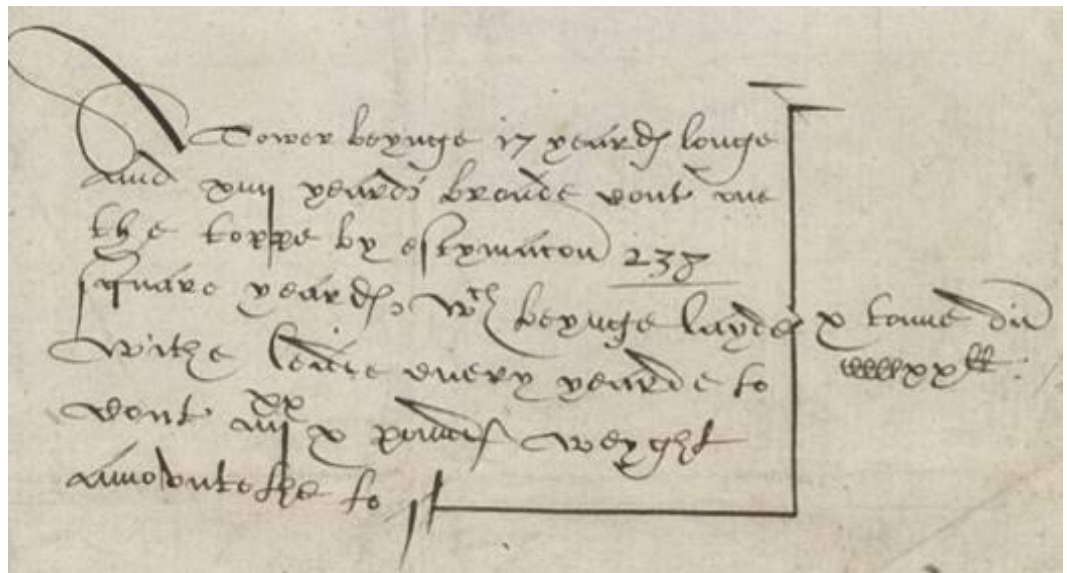 Tower beynge 17 yeardes longe
and xiiij yeardes broade cont one
the toppe by estymacon 238
square yeardes, wch beynge layde
withe leade every yearde to
cont iiijxx x poundes weyght
amountethe to
x tonne di
CCCCxx ll